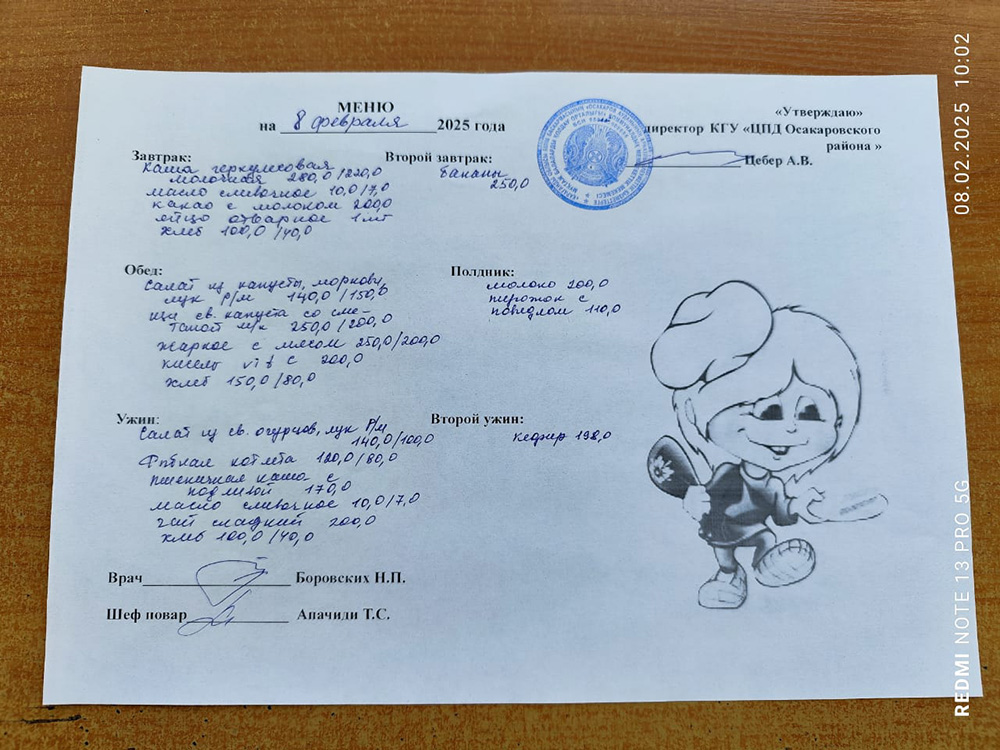 МЕНЮ
на 8 февраля 2025 года
«Утверждаю»
директор КГУ «ЦПД Осакаровского
района »
Цебер А.В.
Завтрак:
Каша геркулесовая
молочная 280,0/220,0
масло сливочное 10,0/7,0
какао с молоком 200,0
яйцо отварное 1 шт
хлеб 100,0 /40,0
Второй завтрак:
бананы
250,0
Обед:
Салат из капусты, моркови,
лук р/м 140,0 /150,0
щи св. капуста со сме-
таной м/к 250,0 /200,0
жаркое с мясом 250,0/200,0
кисель vit с 200,0
хлеб 150,0 /80,0
Полдник:
молоко 200,0
пирожок с
повидлом 110,0
Ужин:
Салат из св. огурцов, лук р/м
140,0/100,0
котлета 120,0/80,0
пшеничная каша с
подливой 170,0
масло сливочное 10,0/7,0
чай сладкий 200,0
хлеб 100,0 /40,0
Второй ужин:
кефир 198,0
Врач Боровских Н.П.
Шеф повар Апачиди Т.С.
REDMI NOTE 13 PRO 5G
08.02.2025 10:02